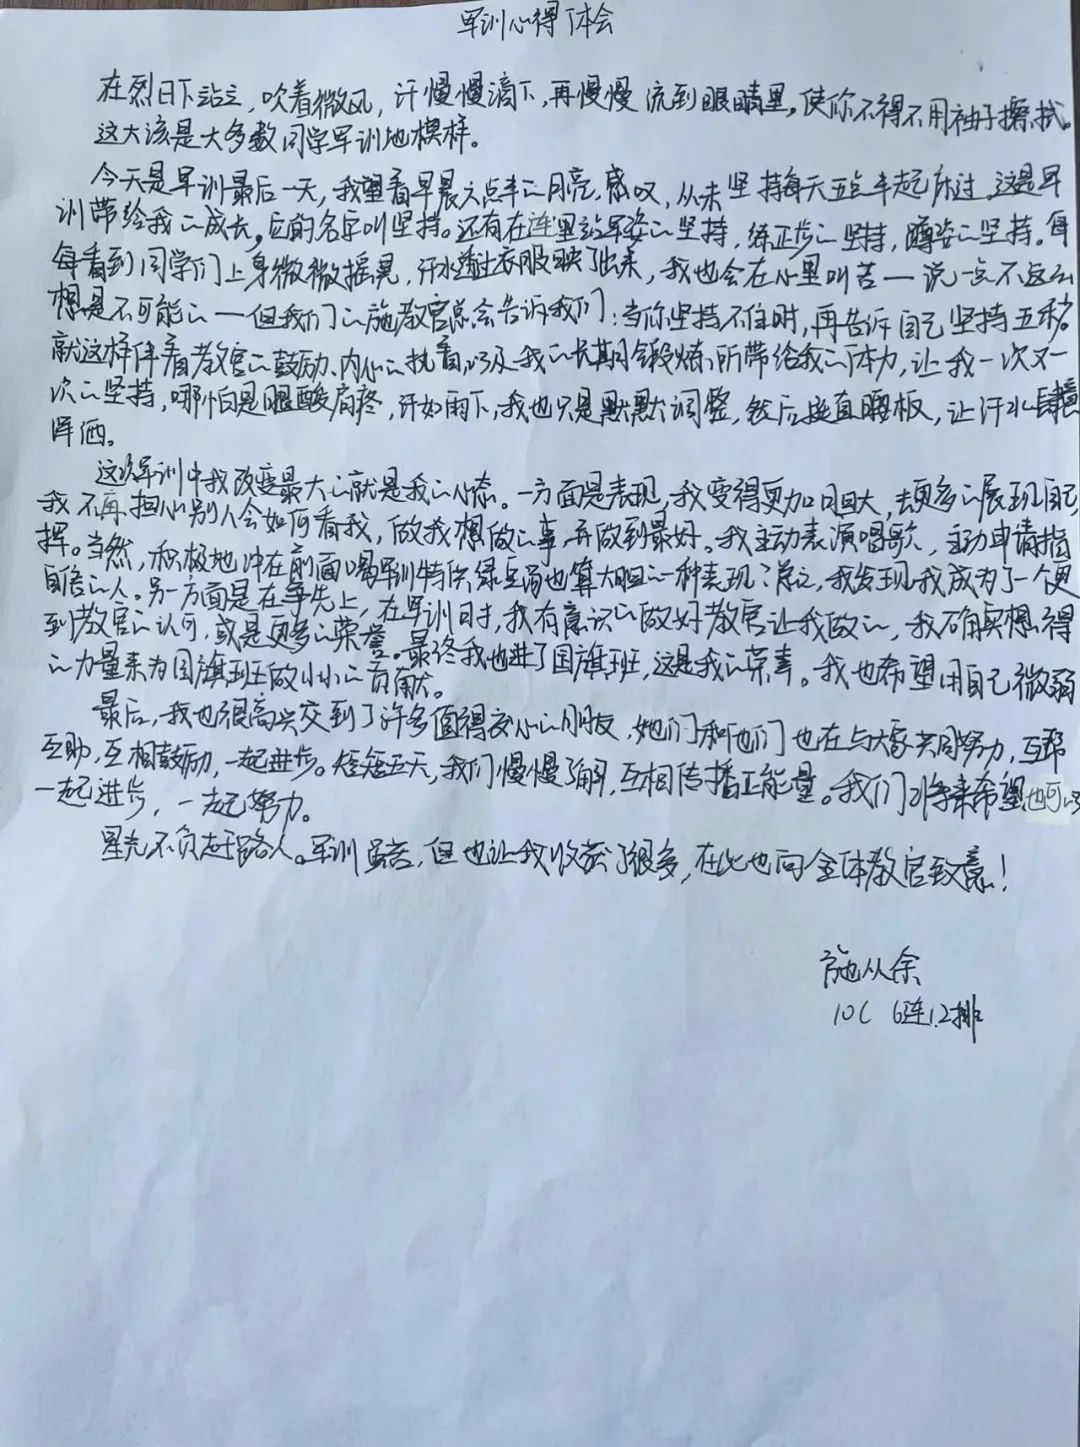 军训心得体会
在烈日下站立，吹着微风，汗慢慢滴下，再慢慢流到眼睛里，使你不得不用袖子擦拭。
这大该是大多数同学军训地模样。
今天是军训最后一天，我望着早晨六点半的月亮，感叹，从未坚持每天五点半起床过。这是军
训带给我的成长，它的名字叫坚持。还有在连里站军姿的坚持，练正步的坚持，蹲姿的坚持。每
每看到同学们上身微微摇晃，汗水透过衣服映了出来，我也会在心里叫苦—说一点不这么
想是不可能的—但我们的施教官总会告诉我们：当你坚持不住时，再告诉自己坚持五秒。
就这样伴着教官的鼓励、内心的执着，以及我的长期锻炼所带给我的体力，让我一次又一
次的坚持，哪怕是腿酸肩疼，汗如雨下，我也只是默默调整，然后挺直腰板，让汗水肆意
挥洒。
这次军训中我改变最大的就是我的心态。一方面是表现，我变得更加胆大，去更多的展现自己，
我不再担心别人会如何看我，做我想做的事，并做到最好。我主动表演唱歌，主动申请指
挥。当然，积极地冲在前面喝军训特供绿豆汤也算大胆的一种表现；总之，我发现我成为了一个更
自信的人。另一方面是在争先上，在军训时，我有意识的做好教官让我做的，我确实想得
到教官的认可，或是更多的荣誉。最终我也进了国旗班，这是我的荣幸。我也希望用自己微弱
的力量来为国旗班做小小的贡献。
最后，我也很高兴交到了许多值得交心的朋友，她们和他们也在与大家共同努力，互帮
互助，互相鼓励，一起进步。短短五天，我们慢慢了解，互相传播正能量。我们将来希望也可以
一起进步，一起努力。
星光不负赶路人。军训虽苦，但也让我收获了很多，在此也向全体教官致意！
施从余
10C 6连1.2排